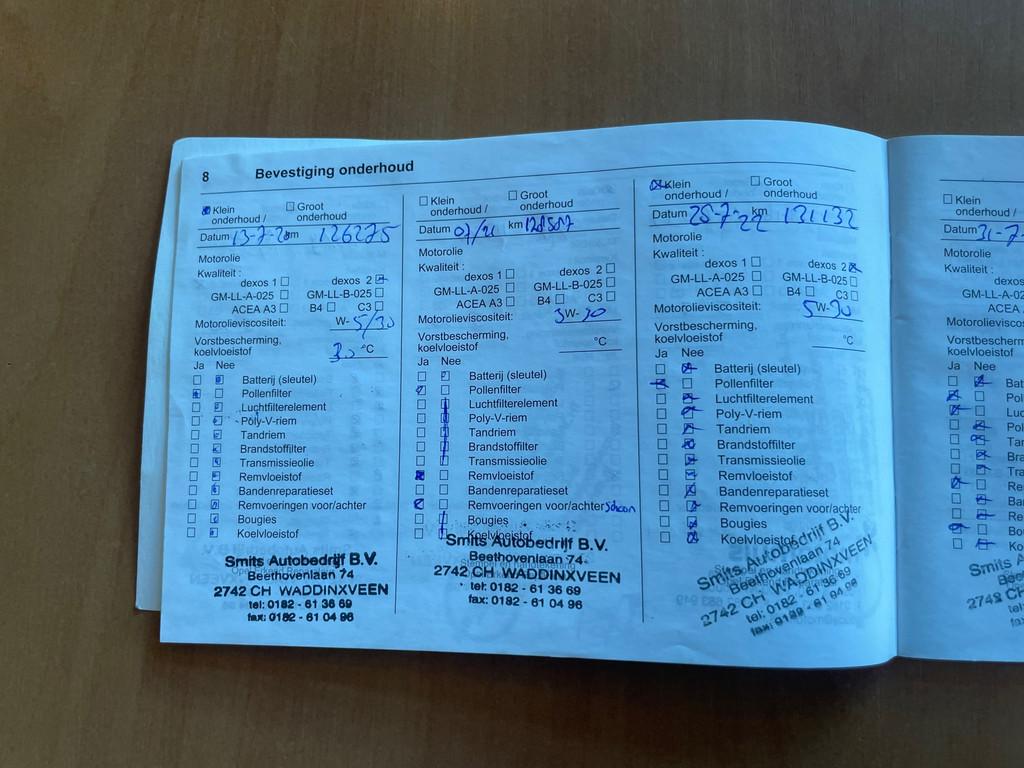 8 Bevestiging onderhoud
Klein onderhoud / Groot onderhoud
Datum 13-7-20 km 126275
Motorolie
Kwaliteit :
dexos 1 dexos 2
GM-LL-A-025 GM-LL-B-025
ACEA A3 B4 C3
Motorolieviscositeit: W- 5/30
Vorstbescherming,
koelvloeistof 30 °C
Ja Nee
Batterij (sleutel)
Pollenfilter
Luchtfilterelement
Poly-V-riem
Tandriem
Brandstoffilter
Transmissieolie
Remvloeistof
Bandenreparatieset
Remvoeringen voor/achter
Bougies
Koelvloeistof
Smits Autobedrijf B.V.
Beethovenlaan 74
2742 CH WADDINXVEEN
tel: 0182 - 61 36 69
fax: 0182 - 61 04 96
Klein onderhoud / Groot onderhoud
Datum 07/21 km 128507
Motorolie
Kwaliteit :
dexos 1 dexos 2
GM-LL-A-025 GM-LL-B-025
ACEA A3 B4 C3
Motorolieviscositeit: 5W-30
Vorstbescherming,
koelvloeistof °C
Ja Nee
Batterij (sleutel)
Pollenfilter
Luchtfilterelement
Poly-V-riem
Tandriem
Brandstoffilter
Transmissieolie
Remvloeistof
Bandenreparatieset
Remvoeringen voor/achter schoon
Bougies
Koelvloeistof
Smits Autobedrijf B.V.
Beethovenlaan 74
2742 CH WADDINXVEEN
tel: 0182 - 61 36 69
fax: 0182 - 61 04 96
Klein onderhoud / Groot onderhoud
Datum 28-7-22 km 131132
Motorolie
Kwaliteit :
dexos 1 dexos 2
GM-LL-A-025 GM-LL-B-025
ACEA A3 B4 C3
Motorolieviscositeit: 5W-30
Vorstbescherming,
koelvloeistof °C
Ja Nee
Batterij (sleutel)
Pollenfilter
Luchtfilterelement
Poly-V-riem
Tandriem
Brandstoffilter
Transmissieolie
Remvloeistof
Bandenreparatieset
Remvoeringen voor/achter
Bougies
Koelvloeistof
Smits Autobedrijf B.V.
Beethovenlaan 74
2742 CH WADDINXVEEN
tel: 0182 - 61 36 69
fax: 0182 - 61 04 96
Klein
onderhoud /
Datum 31-7-
Motorolie
Kwaliteit :
GM-LL-A-02
ACEA A
Motorolievisco
Vorstbescherm
koelvloeistof
Ja Nee
Bat
Pol
Lu
Pol
Ta
Bra
Tra
Re
Ba
Re
Bo
Ko
Smits A
Bee
2742 CH
tel
fa